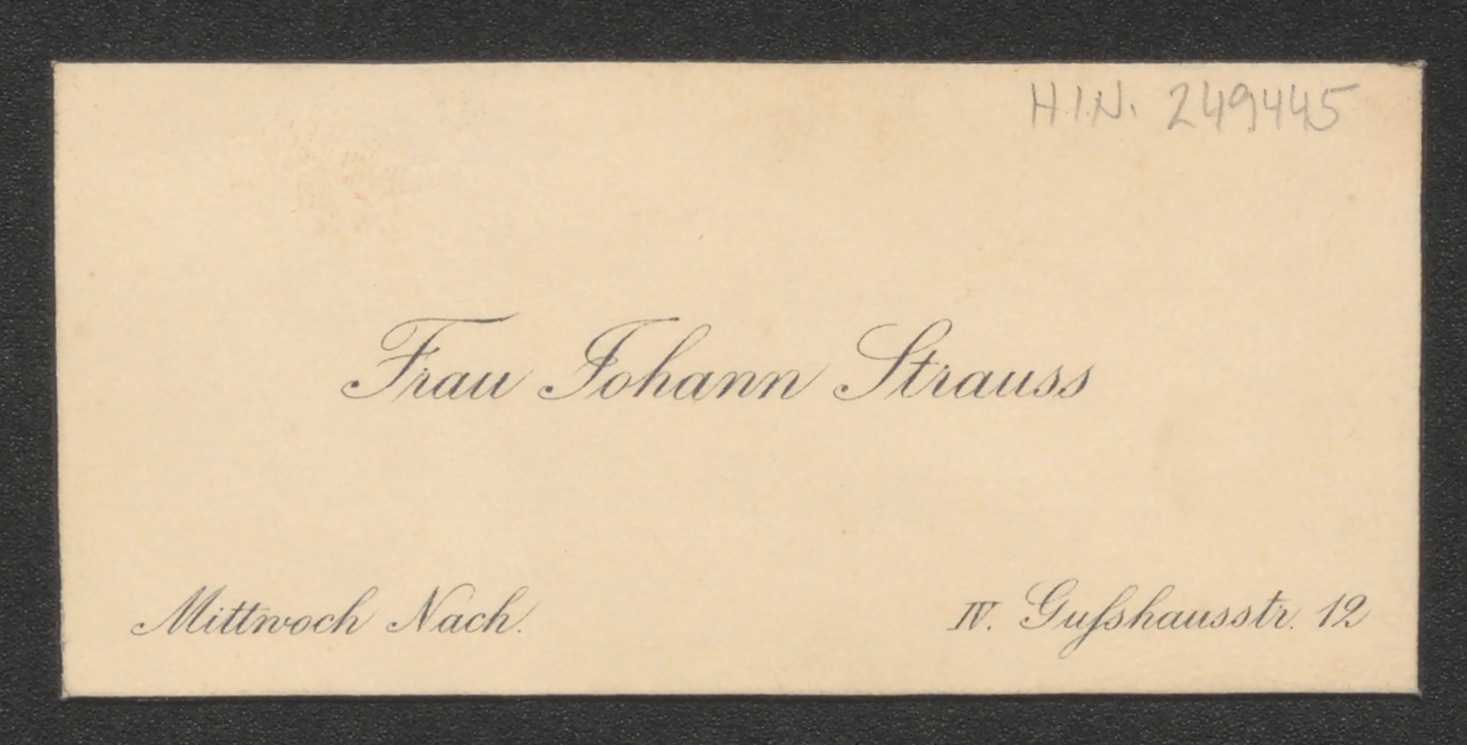 H.I.N. 249445
Frau Johann Strauss
Mittwoch Nach.
IV. Guſshausstr. 12